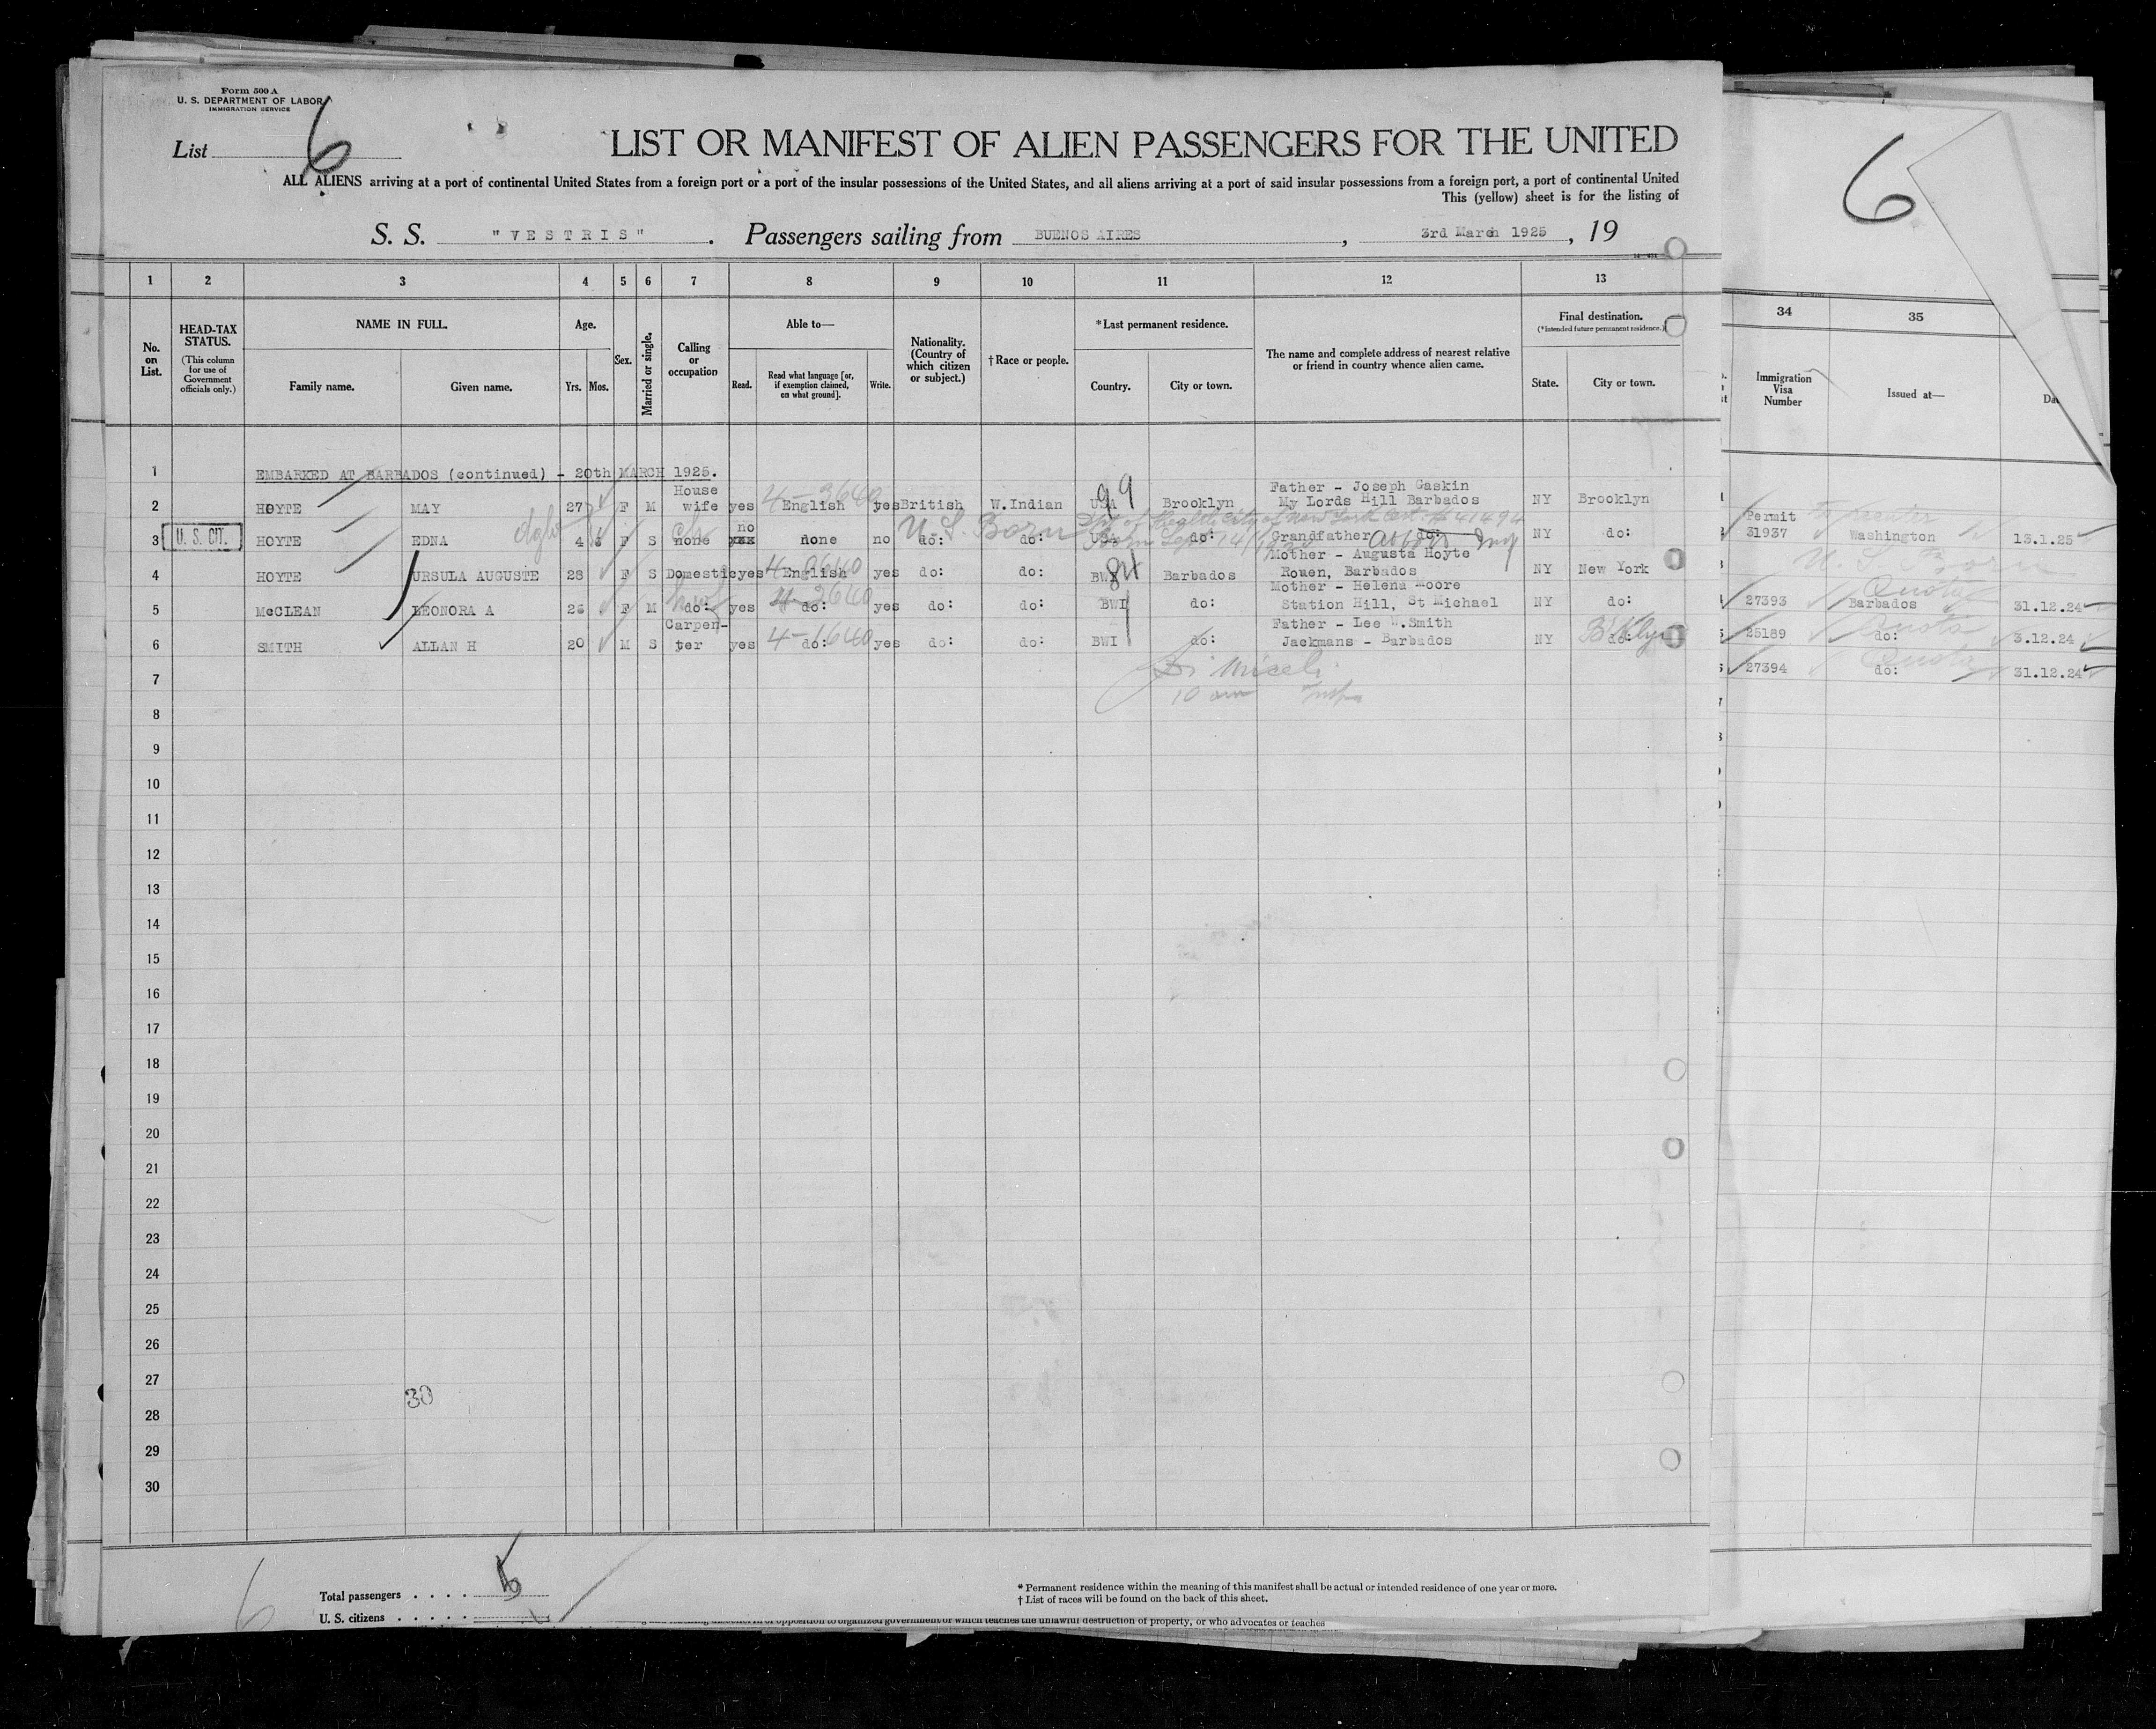 Form 500 A
U. S. DEPARTMENT OF LABOR
IMMIGRATION SERVICE
List 6
LIST OR MANIFEST OF ALIEN PASSENGERS FOR THE UNITED
ALL ALIENS arriving at a port of continental United States from a foreign port or a port of the insular possessions of the United States, and all aliens arriving at a port of said insular possessions from a foreign port, a port of continental United
This (yellow) sheet is for the listing of
S. S. "VESTRIS". Passengers sailing from BUENOS AIRES, 3rd March 1925, 19
6
1 2 3 4 5 6 7 8 9 10 11 12 13
34 35
No. on List.
HEAD-TAX STATUS.
(This column for use of Government officials only.)
NAME IN FULL.
Family name. Given name.
Age.
Yrs. Mos.
Sex.
Married or single.
Calling or occupation
Able to—
Read. Read what language [or, if exemption claimed, on what ground]. Write.
Nationality. (Country of which citizen or subject.)
† Race or people.
*Last permanent residence.
Country. City or town.
The name and complete address of nearest relative or friend in country whence alien came.
Final destination.
(*Intended future permanent residence.)
State. City or town.
Immigration Visa Number
Issued at—
1 EMBARKED AT BARBADOS (continued) - 20th MARCH 1925.
2 HOYTE MAY 27 F M House wife yes 4-2640 English yes British W.Indian USA 99 Brooklyn Father - Joseph Gaskin My Lords Hill Barbados NY Brooklyn
3 U. S. CIT. HOYTE EDNA 4 F S none no xxx none no do: U.S. Born do: USA do: Grandfather do: NY do:
Dpt of Health City of New York Cert # 41494
Born Sep 14
4 HOYTE URSULA AUGUSTE 28 F S Domestic yes 4-2640 English yes do: do: BWI 84 Barbados Mother - Augusta Hoyte Rouen, Barbados NY New York
5 McCLEAN LEONORA A 26 F M do: yes 4-2640 do: yes do: do: BWI do: Mother - Helena Moore Station Hill, St Michael NY do:
6 SMITH ALLAN H 20 M S Carpenter yes 4-1640 do: yes do: do: BWI do: Father - Lee W.Smith Jackmans - Barbados NY do: B'klyn
Permit
31937 Washington 13.1.25
U. S. Born
27393 Quota Barbados 31.12.24
25189 Quota do: 3.12.24
27394 Quota do: 31.12.24
7
8
9
10
11
12
13
14
15
16
17
18
19
20
21
22
23
24
25
26
27
30
28
29
30
Total passengers . . . .
U. S. citizens . . . . .
* Permanent residence within the meaning of this manifest shall be actual or intended residence of one year or more.
† List of races will be found on the back of this sheet.
opposition to organized government or which teaches the unlawful destruction of property, or who advocates or teaches